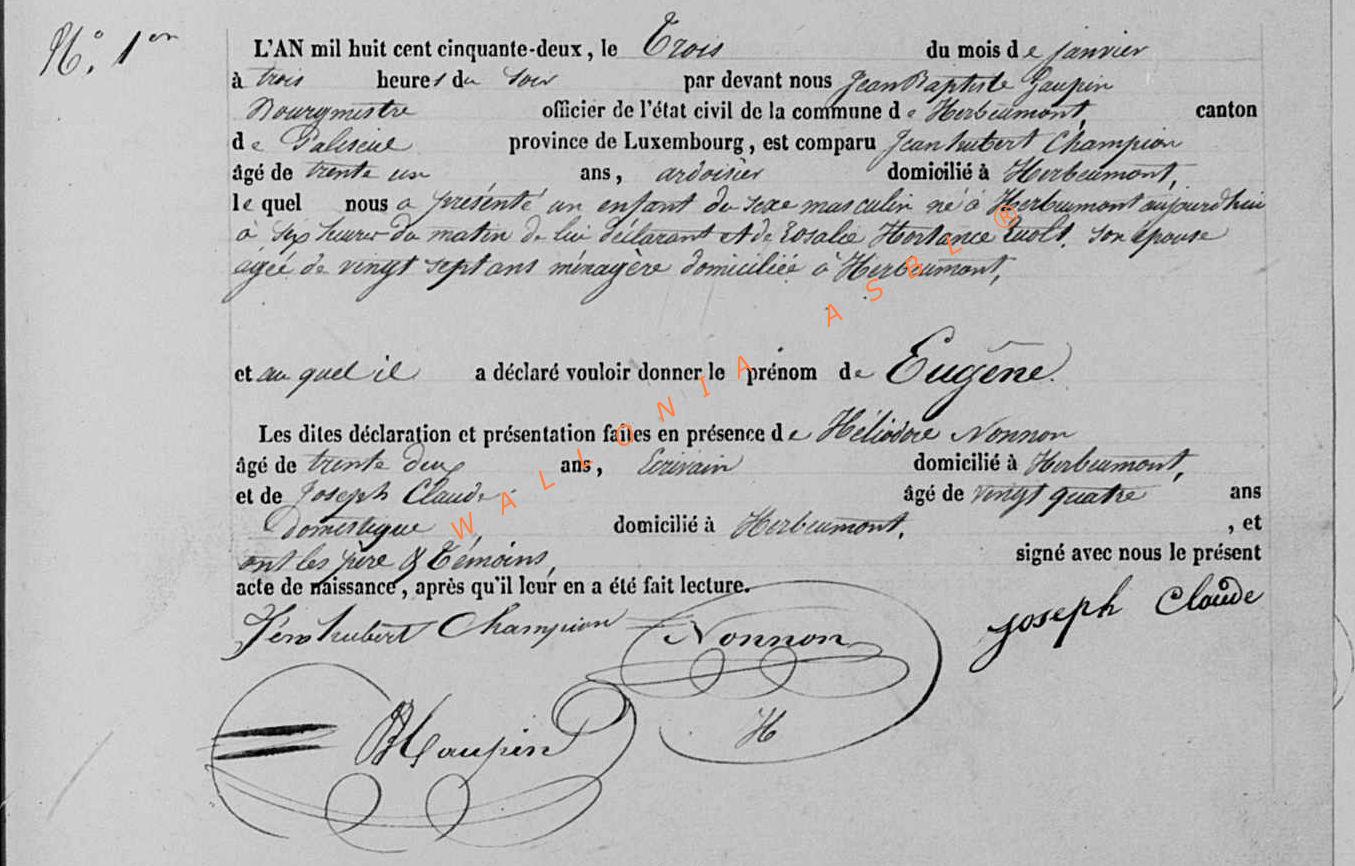 N.º 1er
L'AN mil huit cent cinquante-deux, le Trois du mois de janvier
à trois heures du soir par devant nous Jean Baptiste Gaupin
Bourgmestre officier de l'état civil de la commune de Herbeumont, canton
de Paliseul province de Luxembourg, est comparu Jean hubert Champion
âgé de trente un ans, ardoisier domicilié à Herbeumont,
le quel nous a présenté un enfant du sexe masculin né à Herbeumont aujourdhui
à six heures du matin de lui déclarant et de Rosalie Hortance son épouse
agée de vingt sept ans ménagère domiciliée à Herbeumont,
et au quel il a déclaré vouloir donner le prénom de Eugêne.
Les dites déclaration et présentation faites en présence de Héliodore Nonnon
âgé de trente deux ans, Ecrivain domicilié à Herbeumont,
et de Joseph Claude âgé de vingt quatre ans
Domestique domicilié à Herbeumont, , et
ont les père & Témoins, signé avec nous le présent
acte de naissance, après qu'il leur en a été fait lecture.
hubert Champion Nonnon Joseph Claude
H
WALLONIA ASBL ®